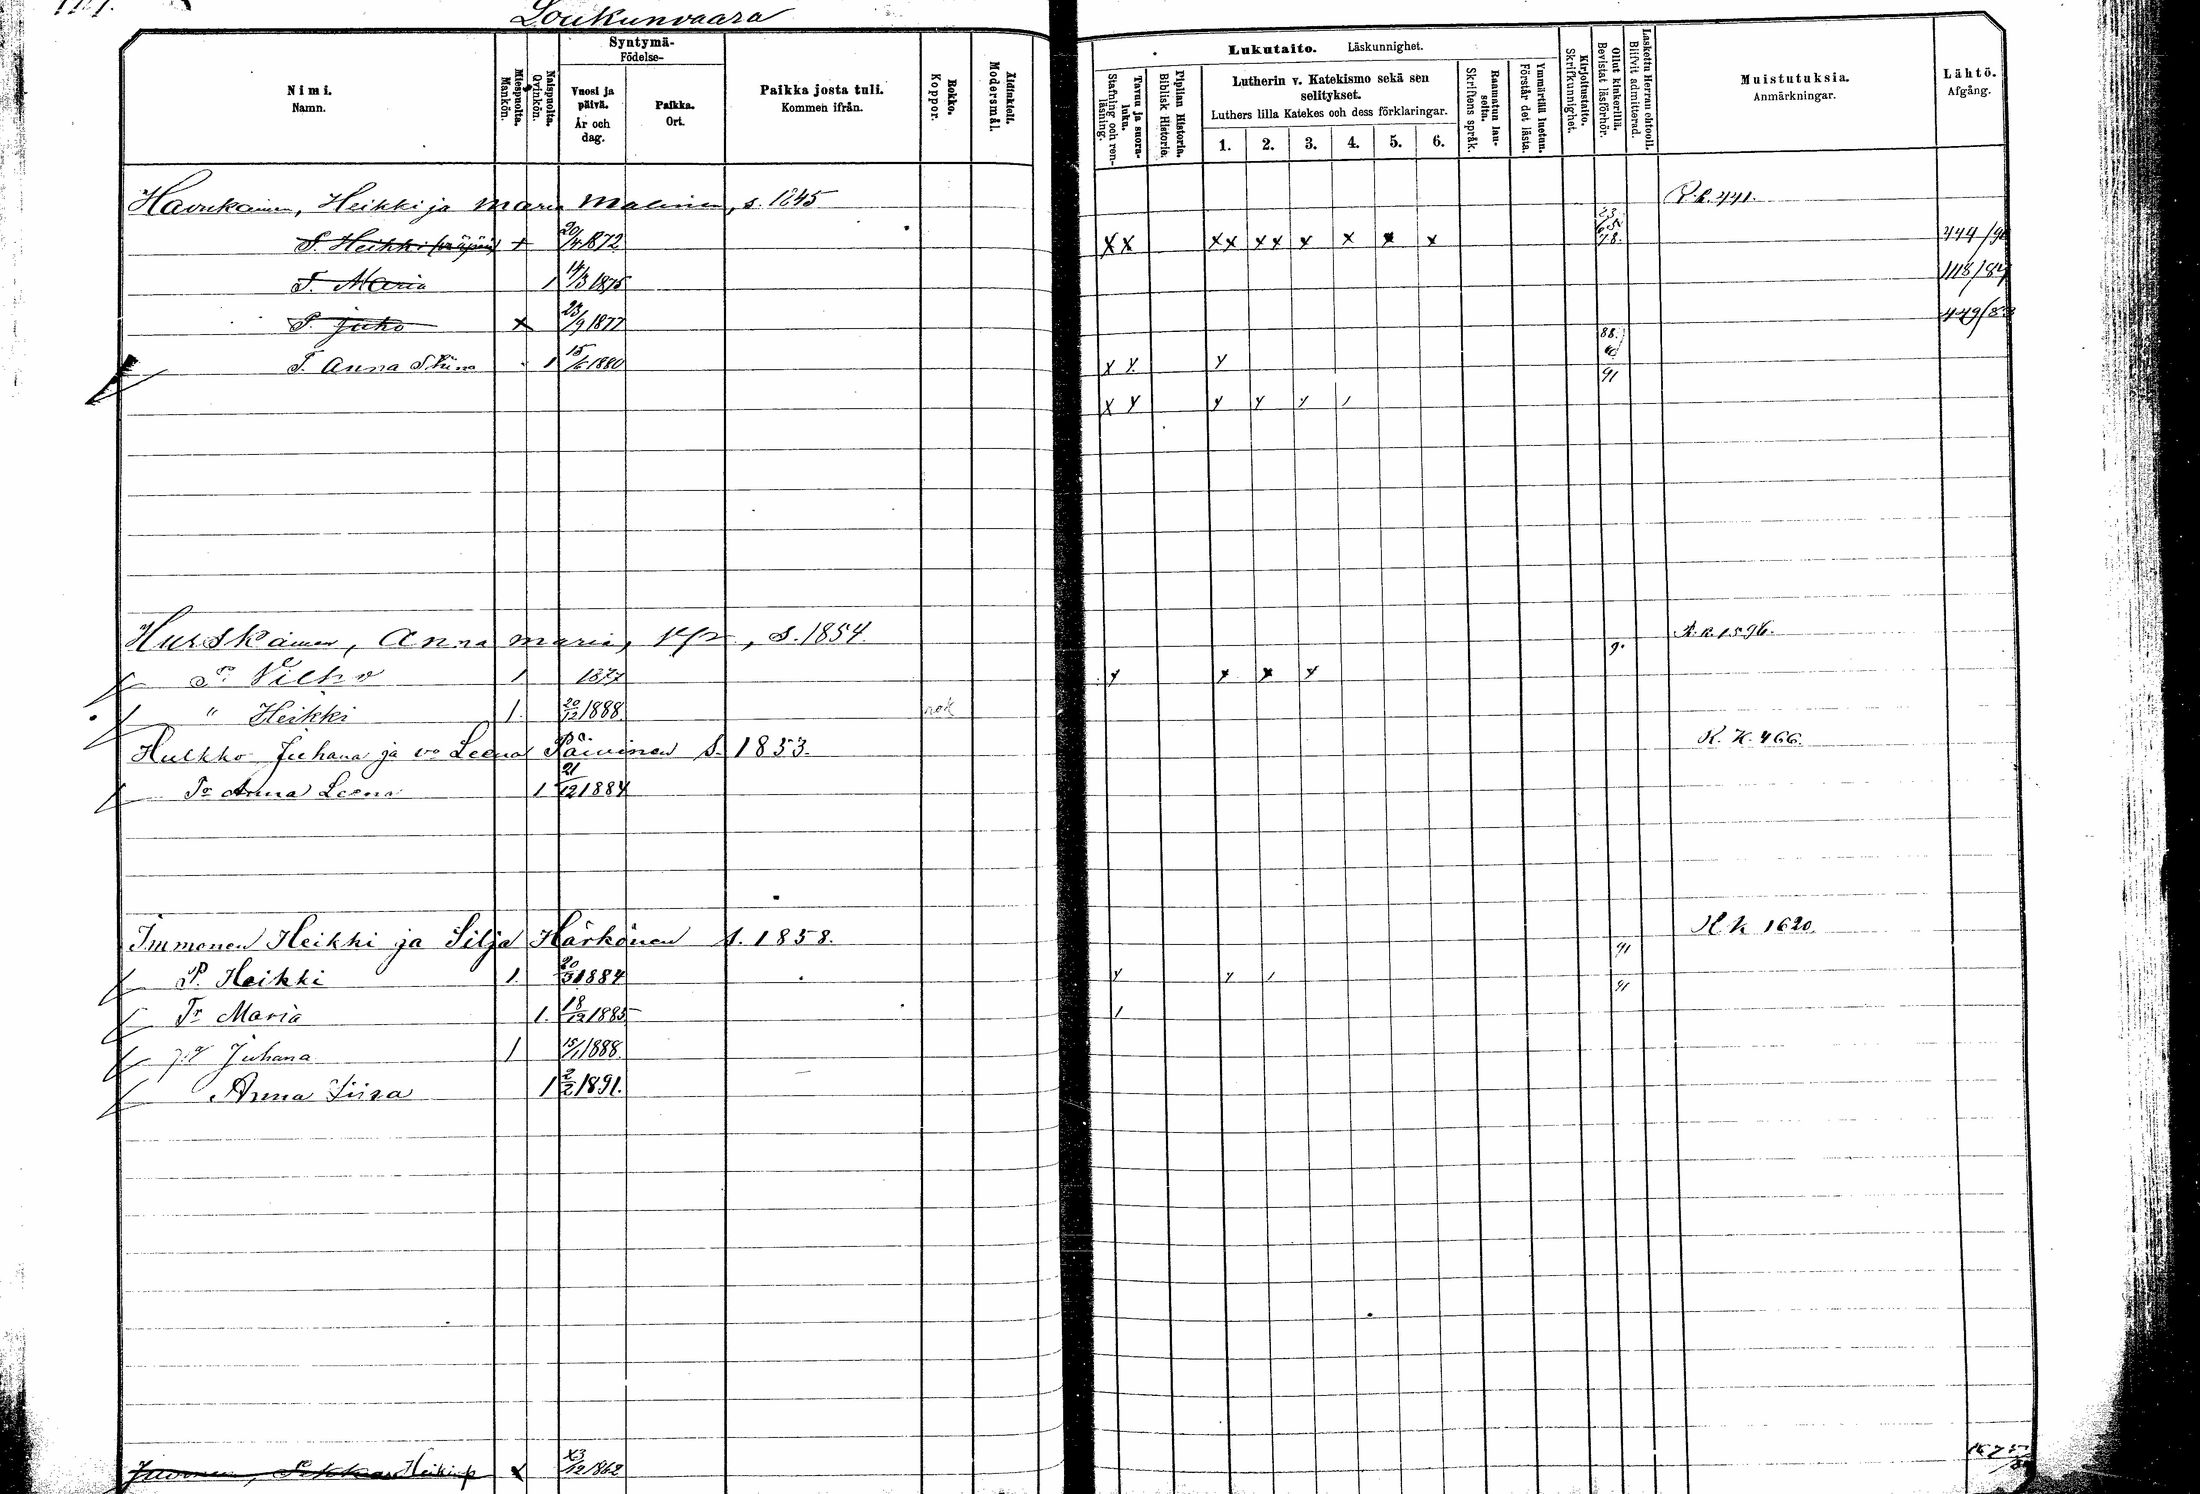 Loukunvaara
Nimi. Namn.
Miespuolta. Mankön.
Naispuolta. Qvinkön.
Syntymä- Födelse-
Vuosi ja päivä. År och dag.
Paikka. Ort.
Paikka josta tuli. Kommen ifrån.
Rokko. Koppor.
Äidinkieli. Modersmål.
Lukutaito. Läskunnighet.
Tavuu ja suora-luku. Stafning och ren-läsning.
Piplian Historia. Biblisk Historie.
Lutherin v. Katekismo sekä sen selitykset.
Luthers lilla Katekes och dess förklaringar.
1. 2. 3. 4. 5. 6.
Raamatun lau-seita. Skriftens språk.
Ymmärtää luetun. Förstår det lästa.
Kirjoitustaito. Skrifkunnighet.
Ollut kinkerillä. Bevistat läsförhör.
Laskettu Herran ehtooll. Blifvit admitterad.
Muistutuksia. Anmärkningar.
Lähtö. Afgång.
Havukainen, Heikki ja Maria Malinen, s. 1845 R.k. 441.
P. Heikki + 20/4 1872 X X X X X X X X X X 444/90
T. Maria 1 14/3 1875 1118/84
P. Juho X 23/9 1877 449/83
88.
T. Anna Stiina 1 15/6 1880 X X X
91
X X X X X 1
Hurskainen, Anna Maria, s. 1854. R.k. 1596.
P. Vilho 1 1877 X X X X
" Heikki 1. 20/12 1888 rok
Hulkko Juhana ja vo Leena Päivinen s. 1853. R.K. 466.
Tr Anna Leena 1 21/12 1884
Immonen Heikki ja Silja Härkönen s. 1858. R.k 1620
91
P. Heikki 1. 20/3 1884 X X 1
91
Tr Maria 1. 18/12 1885 1
Juhana 1 15/1 1888.
Anna Liisa 1 2/2 1891.
Heikinp X /12 1862